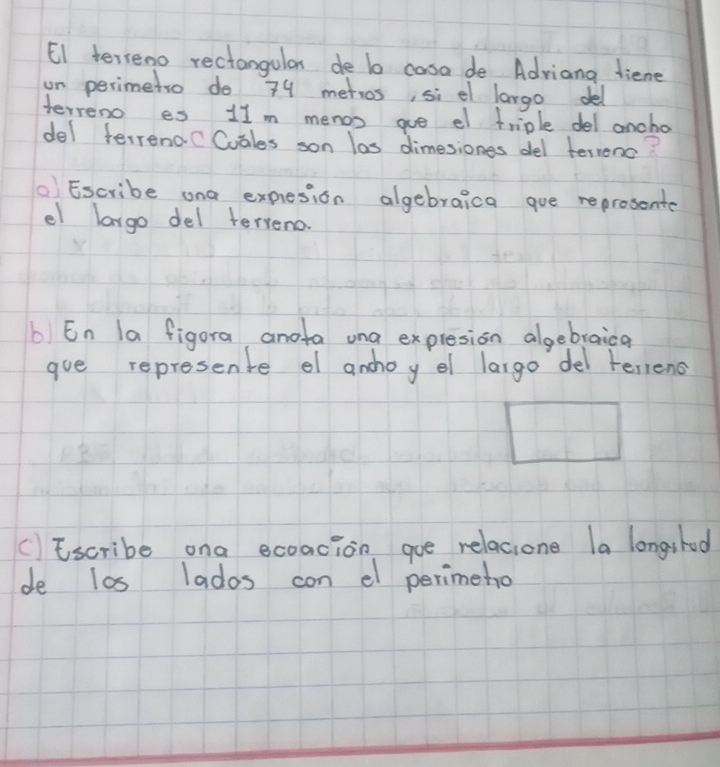 El terreno rectangular de la casa de Adriana tiene
un perimetro de 74 metros, si el largo del
terreno es 11 m menos que el triple del ancho
del terreno ¿Cuáles son las dimesiones del terreno?
a) Escribe una expresión algebraica que represente
el largo del terreno.
b) En la figora, anota una expresión algebraica
que represente el ancho y el largo del terreno
c) Escribe ona ecoación que relacione la longitud
de los lados con el perimetro